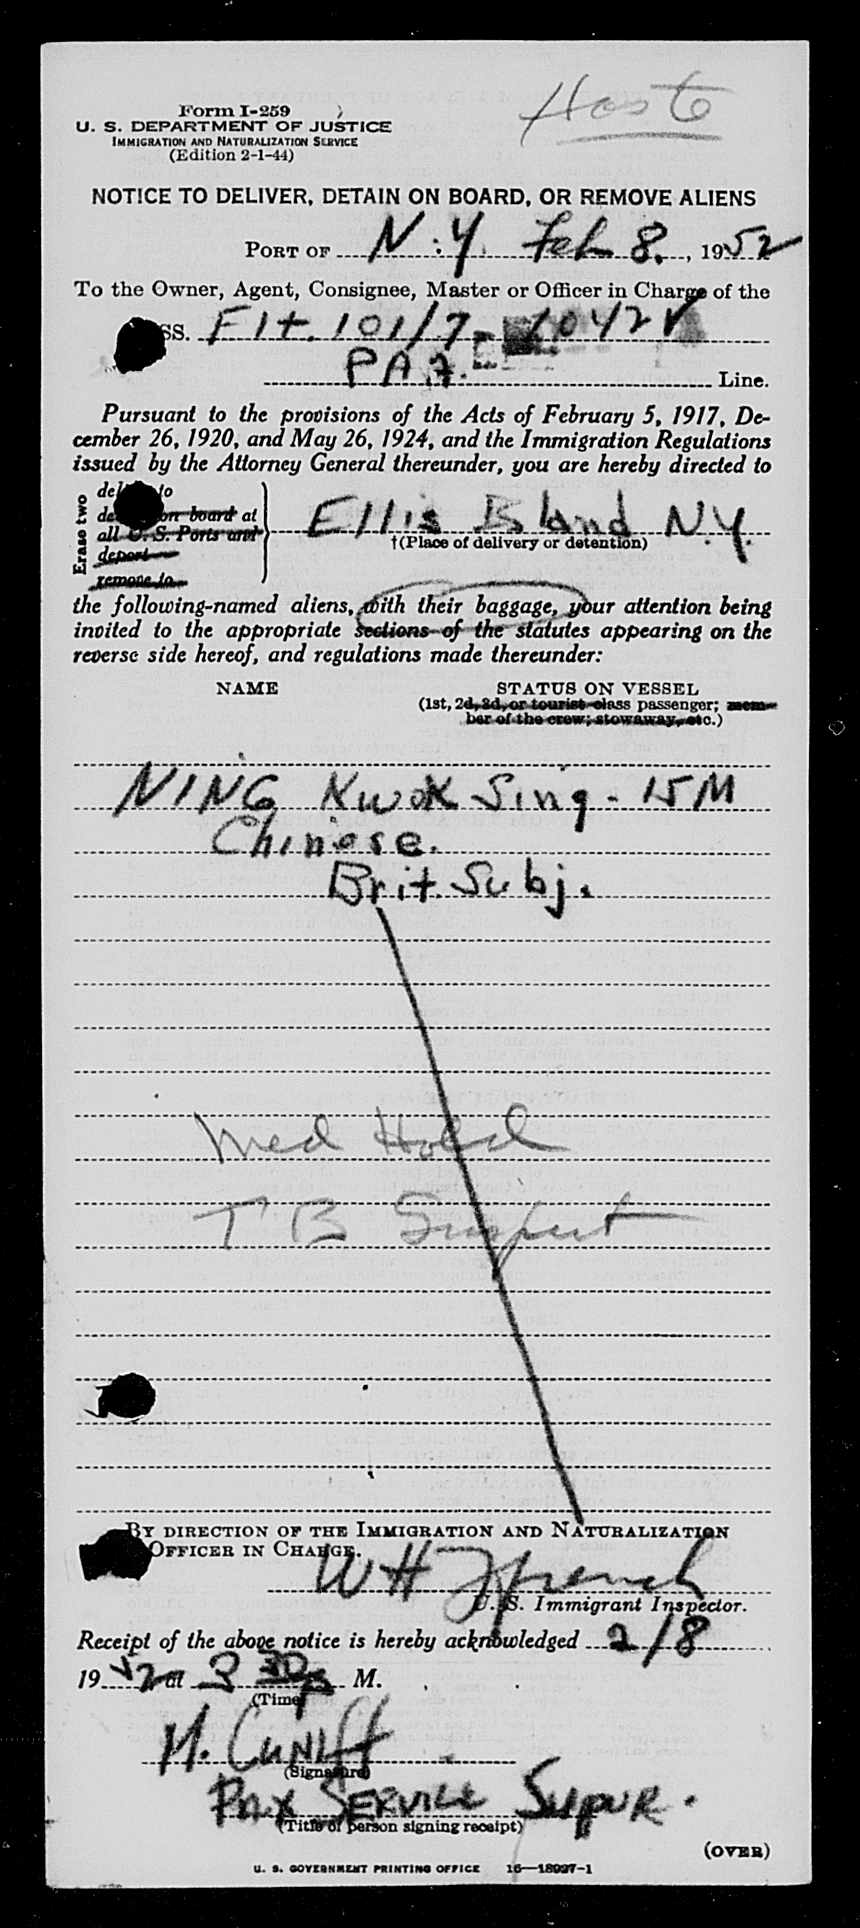 Form I-259
U. S. DEPARTMENT OF JUSTICE
IMMIGRATION AND NATURALIZATION SERVICE
(Edition 2-1-44)
NOTICE TO DELIVER, DETAIN ON BOARD, OR REMOVE ALIENS
PORT OF N.Y. Feb 8, 1952
To the Owner, Agent, Consignee, Master or Officer in Charge of the
SS. Flt. 101/7 - 1042V
PAA. Line.
Pursuant to the provisions of the Acts of February 5, 1917, De-
cember 26, 1920, and May 26, 1924, and the Immigration Regulations
issued by the Attorney General thereunder, you are hereby directed to
Erase two
to
on board at
all U. S. Ports and
deport
remove to
Ellis Island N.Y.
†(Place of delivery or detention)
the following-named aliens, with their baggage, your attention being
invited to the appropriate sections of the statutes appearing on the
reverse side hereof, and regulations made thereunder:
NAME STATUS ON VESSEL
(1st, 2d, 3d, or tourist class passenger; mem-
ber of the crew; stowaway, etc.)
NING Kwok Sing - 15M
Chinese.
Brit. Subj.
Med Hold
TB Suspect
BY DIRECTION OF THE IMMIGRATION AND NATURALIZATION
OFFICER IN CHARGE.
WH French
U. S. Immigrant Inspector.
Receipt of the above notice is hereby acknowledged 2/8
1952 at 3 30 P M.
(Time)
M. Cuniff
(Signature)
Pax SERVICE SUPVR.
(Title of person signing receipt)
(OVER)
U. S. GOVERNMENT PRINTING OFFICE 16—18927-1